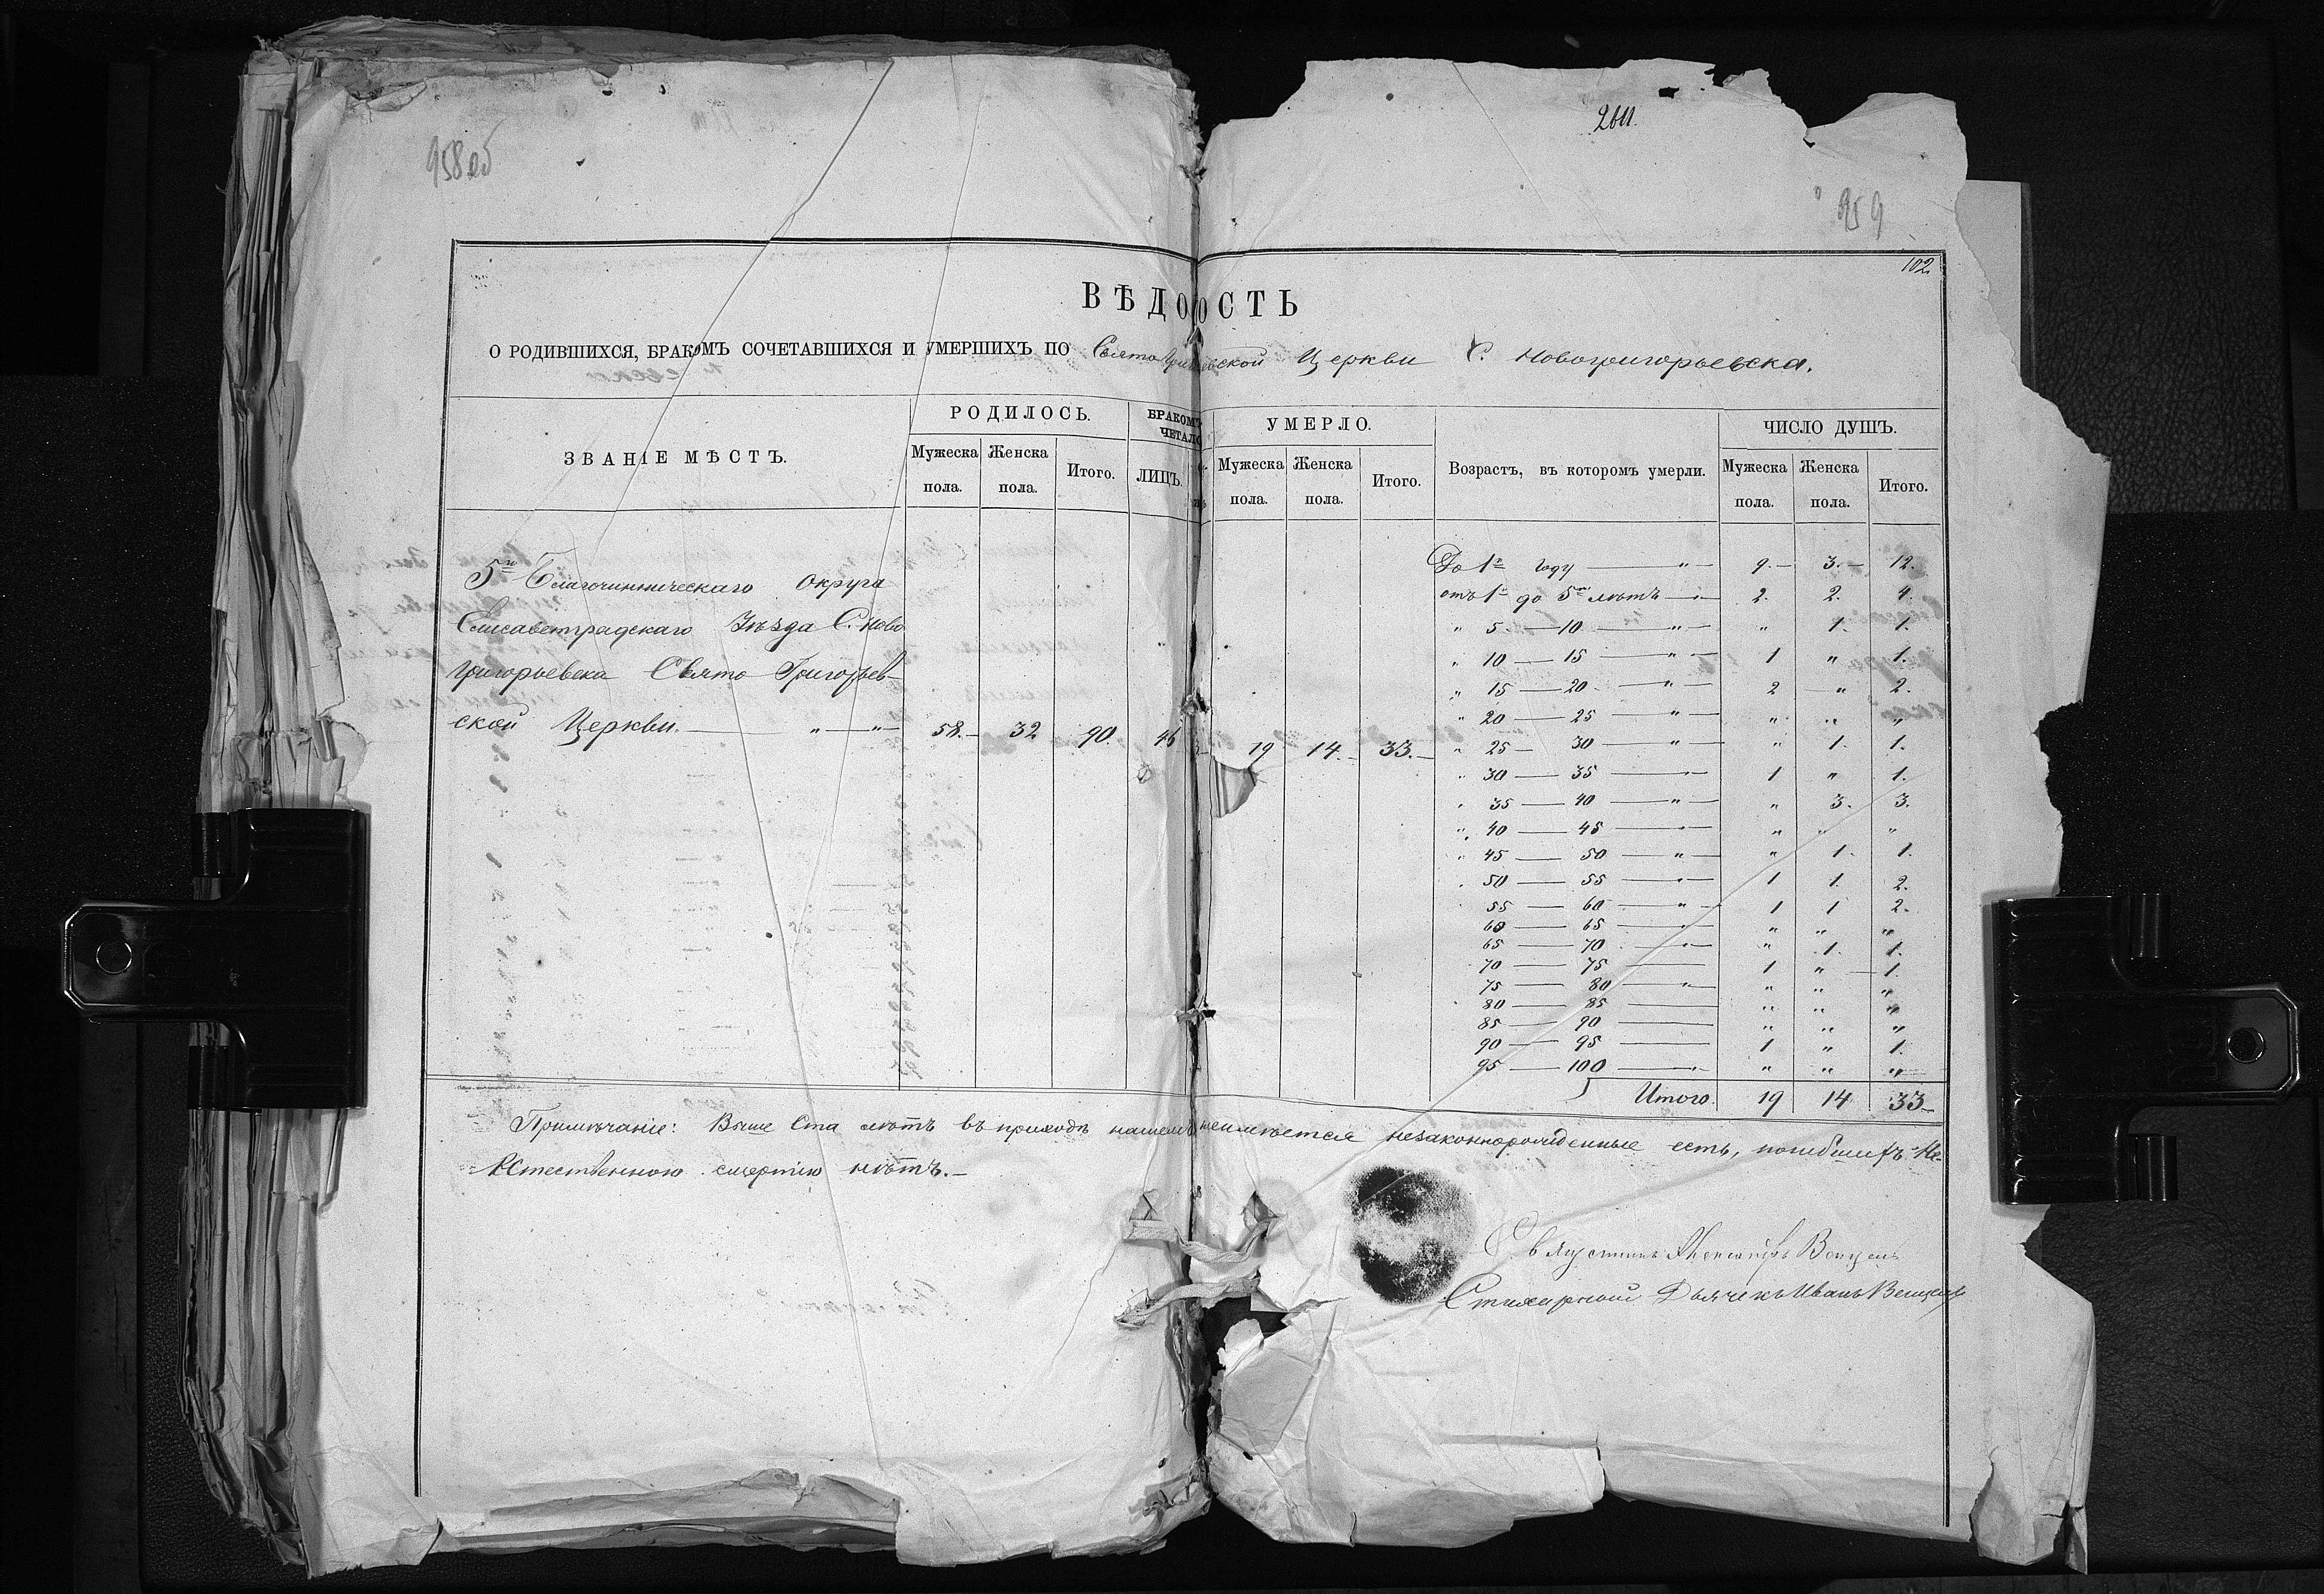 958об
2611.
959
102.
ВѢДОМОСТЬ
О РОДИВШИХСЯ, БРАКОМЪ СОЧЕТАВШИХСЯ И УМЕРШИХЪ ПО Свято Григорьевской Церкви С. Новогригорьевска.
ЗВАНІЕ МѢСТЪ. РОДИЛОСЬ. БРАКОМЪ УМЕРЛО. Возрастъ, въ которомъ умерли. ЧИСЛО ДУШЪ.
ЧЕТАЛО
Мужеска пола. Женска пола. Итого. ЛИЦЪ. Мужеска пола. Женска пола. Итого. Мужеска пола. Женска пола. Итого.
5го Благочинническаго округа
Елисаветградскаго Уѣзда С. Ново
григорьевска Свято Григорьев-
ской Церкви. — " — " — 58. — 32 90. 46 19 14. — 33. —
До 1го году — " — 9. — 3. — 12.
отъ 1го до 5ти лѣтъ — " — 2. 2. 4.
" 5 — 10 — " — " 1. 1.
" 10 — 15 — " — 1 " 1.
" 15 — 20 — " — 2 " 2.
" 20 — 25 — " — " " "
" 25 — 30 — " — " 1. 1.
" 30 — 35 — " — 1 " 1.
" 35 — 40 — " — " 3. 3.
" 40 — 45 — " — " " "
" 45 — 50 — " — " 1. 1.
" 50 — 55 — " — 1 1. 2.
55 — 60 — " — 1 1 2.
60 — 65 — " — " " "
65 — 70 — " — " 1. 1.
70 — 75 — 1 " — 1.
75 — 80 — " — " " "
80 — 85 — " " "
85 — 90 — " " "
90 — 95 — 1 " 1.
95 — 100 — " — " " "
Итого. 19 14 33 —
Примѣчаніе: Выше Ста лѣтъ въ приходѣ нашемъ неимѣется незаконнорожденные есть, погибшихъ Не-
Естественною смертію нѣтъ. —
Священникъ Александръ
Стихарный Дьячекъ Иванъ